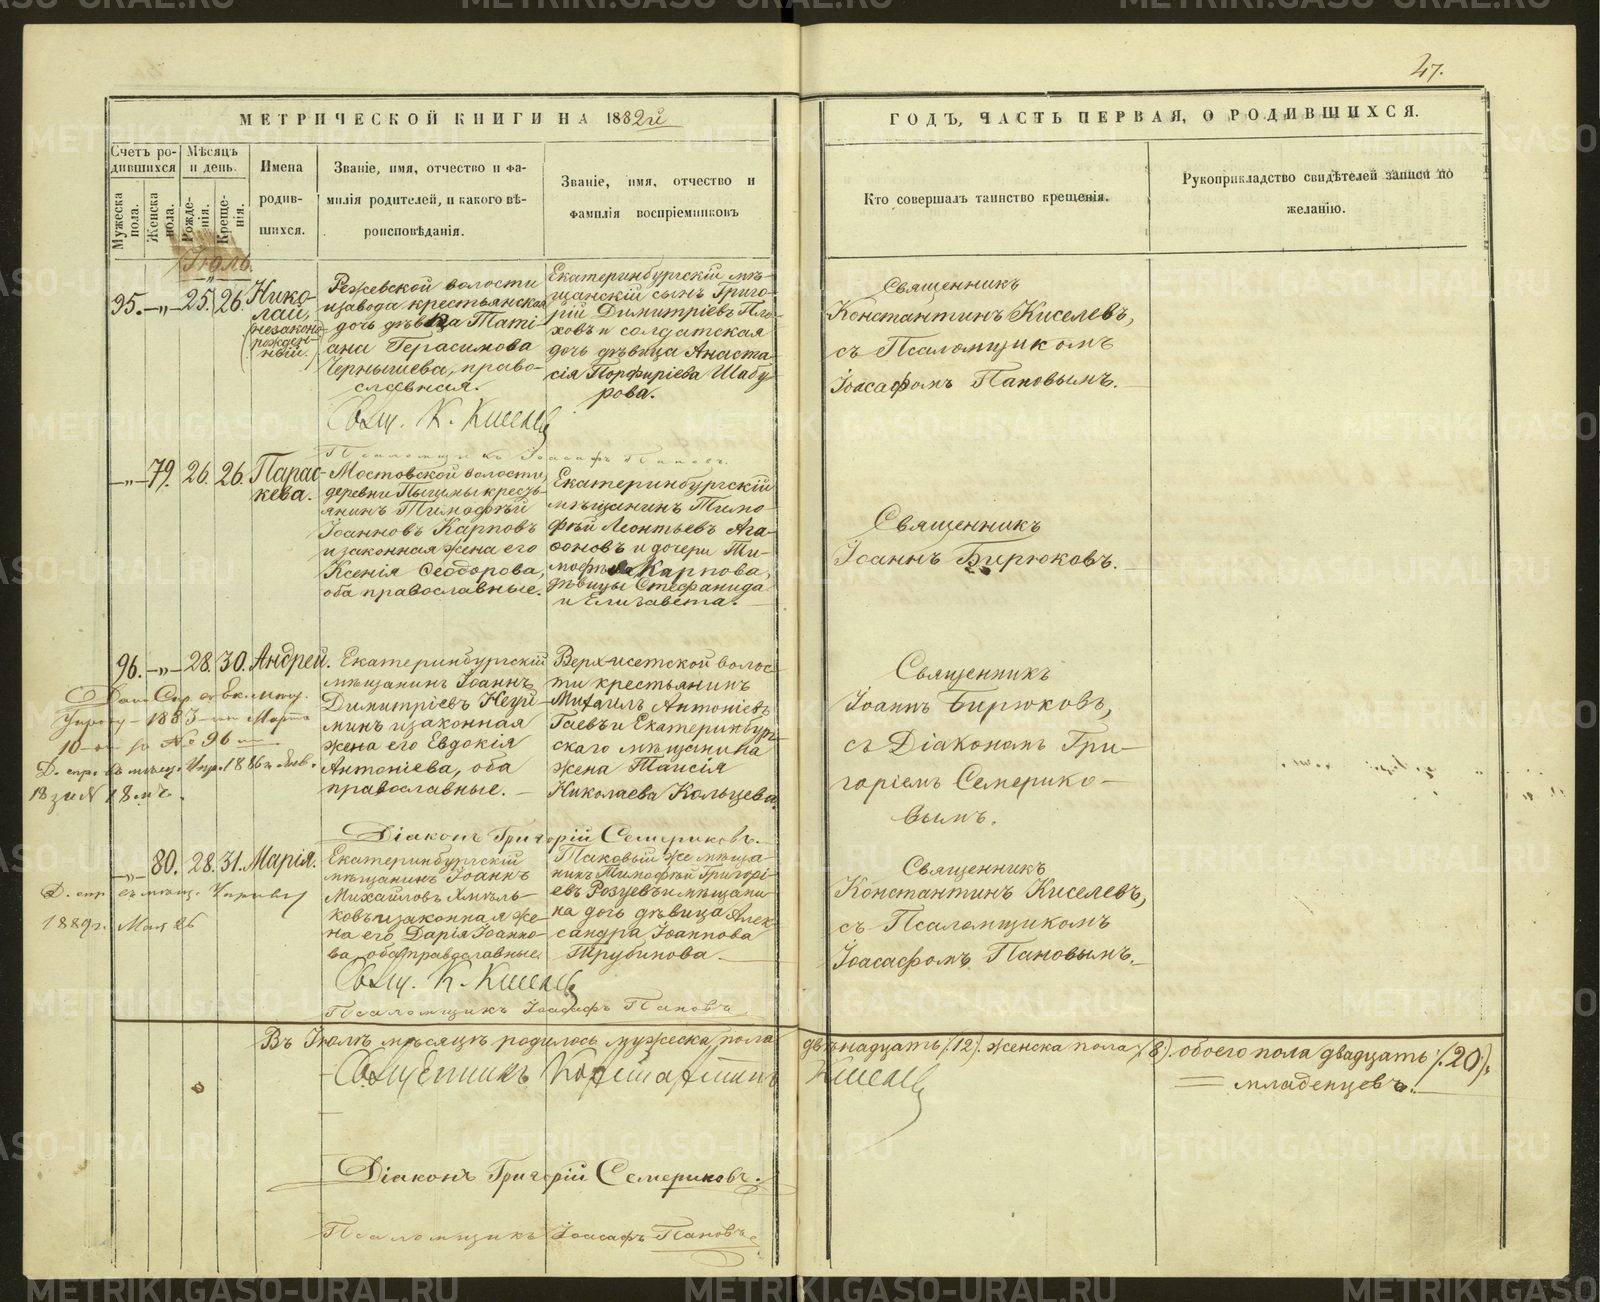 47.
МЕТРИЧЕСКОЙ КНИГИ НА 1882й
ГОДЪ, ЧАСТЬ ПЕРВАЯ, О РОДИВШИХСЯ.
Счетъ ро-
дившихся
Мужеска пола.
Женска пола.
Мѣсяцъ
и день.
Рожде-
нія.
Креще-
нія.
Имена
родив-
шихся.
Званіе, имя, отчество и фа-
милія родителей, и какого вѣ-
роисповѣданія.
Званіе, имя, отчество и
фамилія воспріемниковъ
Кто совершалъ таинство крещенія.
Рукоприкладство свидѣтелей записи по
желанію.
Іюль.
95. —„— 25. 26.
Нико-
лай,
(незаконо-
рожден-
ный.)
Режевской волости
и завода крестьянская
дочь дѣвица Таті-
ана Герасимова
Чернышева, право-
славная.
Екатеринбургскій мѣ-
щанскій сынъ Григо-
рій Димитріевъ Пло-
ховъ и солдатская
дочь дѣвица Анаста-
сія Порфиріева Шабу
рова.
Священникъ
Константинъ Киселевъ,
съ Псаломщикомъ
Іоасафомъ Пановымъ.
Свящ. К. Киселев
Псаломщикъ Іоасафъ Пановъ.
—„— 79. 26. 26.
Парас-
кева.
Мостовской волости,
деревни Пышмы кресть-
янинъ Тимофѣй
Іоанновъ Карповъ
и законная жена его
Ксенія Ѳеодорова,
оба православные.
Екатеринбургскій
мѣщанинъ Тимо-
фѣй Леонтьевъ Ага-
фоновъ и дочери Ти-
мофѣя Карпова,
дѣвицы Стефанида
и Елизавета.
Священникъ
Іоаннъ Бирюковъ.
96. —„— 28. 30. Андрей.
Екатеринбургскій
мѣщанинъ Іоаннъ
Димитріевъ
и законная
жена его Евдокія
Антоніева, оба
православные.
Верх-исетской волос-
ти крестьянинъ
Михаилъ Антоніевъ
Гаевъ и Екатеринбург-
скаго мѣщанина
жена Таисія
Николаева Кольцева.
Священникъ
Іоаннъ Бирюковъ,
съ Діакономъ Гри-
горіемъ Семерико-
вымъ.
Дана Спр. въ Ек. мѣщ.
Управу 1883 Марта
10 за № 96
Д. спр. въ мѣщ. Упр. 1886 г. Янв.
18 за № 18
Діаконъ Григорій Семериковъ.
—„— 80. 28. 31. Марія.
Екатеринбургскій
мѣщанинъ Іоаннъ
Михайловъ Хмѣль-
ковъ и законная же-
на его Дарія Іоанно-
ва, оба православные.
Таковый же мѣща-
нинъ Тимофѣй Григорі-
евъ Розуевъ и мѣщани-
на дочь дѣвица Алек-
сандра Іоаннова
Трубинова.
Священникъ
Константинъ Киселевъ,
съ Псаломщикомъ
Іоасафомъ Пановымъ.
Д. спр. въ мѣщ. Управу
1889 г. Мая 26
Свящ. К. Киселев
Псаломщикъ Іоасафъ Пановъ
Въ Іюлѣ мѣсяцѣ родилось мужеска пола двѣнадцать /.12/. женска пола /.8/. обоего пола двадцать /.20/.
младенцевъ.
Священникъ Константинъ Киселев
Діаконъ Григорій Семериковъ.
Псаломщикъ Іоасафъ Пановъ
METRIKI.GASO-URAL.RU